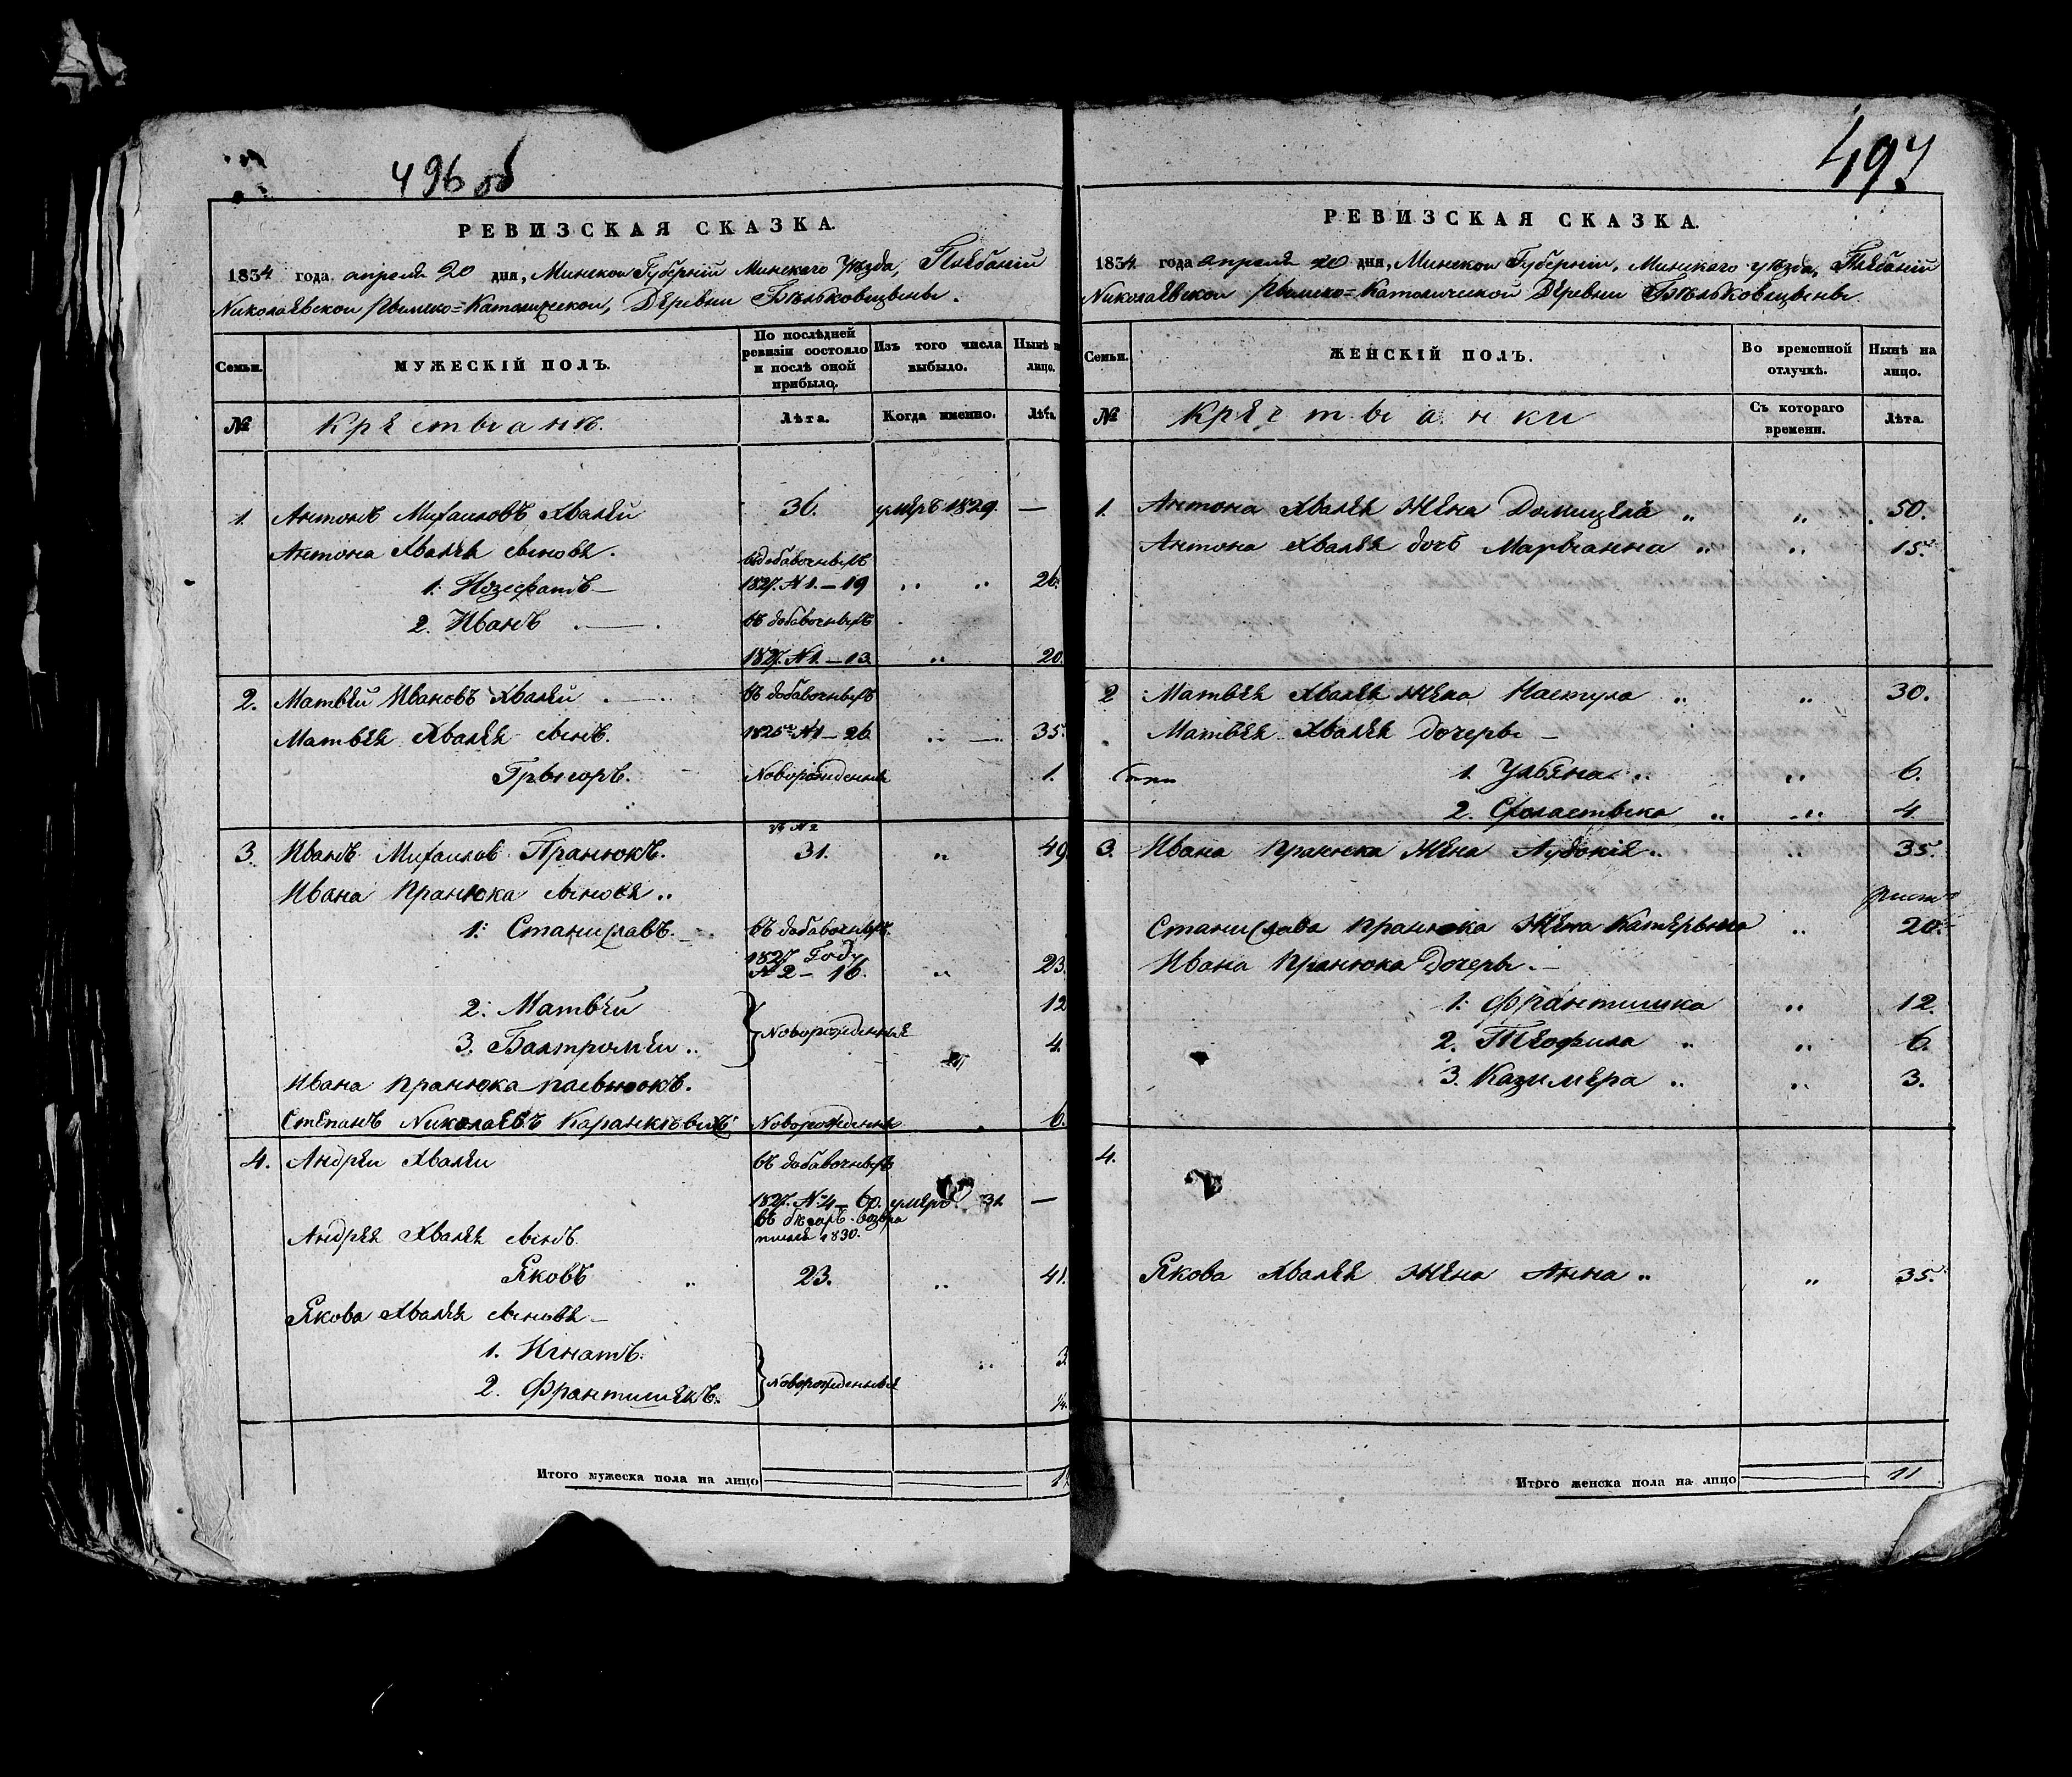 496 об
РЕВИЗСКАЯ СКАЗКА.
1834 года апреля 20 дня, Минской Губерніи Минскаго Уѣзда, Плебаніи
Николаевской Рымско=Католической, Деревни Бѣльковщызны.
Семьи.
МУЖЕСКІЙ ПОЛЪ.
По послѣдней ревизіи состояло и послѣ оной прибыло.
Изъ того числа выбыло.
Нынѣ на лицо.
№
Крестьянѣ.
Лѣта.
Когда именно.
Лѣта.
1. Антонъ Михаиловъ Хвалей 36. умеръ 1829. —
Антона Хвалея сыновя.
въ добавочныхъ
1. Іозефатъ — 1827. N 1. — 19 „ „ 26.
2. Иванъ въ добавочныхъ
1827. N 1. — 13. „ 20.
2. Матвей Ивановъ Хвалей въ добавочныхъ
Матвея Хвалея сынъ. 1825 N 1 — 26 „ — 35.
Грыгоръ. Новорожденный 1.
3. Иванъ Михаилов Пранюкъ. 31. „ 49.
Ивана Пранюка сыновя „
1. Станиславъ. въ добавочныхъ
1827 Году
N 2 — 16. „ 23.
2. Матвей 12
3. Балтромей „ } Новорожденныя 4.
Ивана Пранюка пасынокъ.
Степанъ Николаевъ Каранкевичъ Новорожденный 6.
4. Андрей Хвалей въ добавочныхъ
1827. N 4 — 60. умеръ 31 —
Андрея Хвалея сынъ. 1830.
Яковъ „ 23. „ 41.
Якова Хвалея сыновя —
1. Игнатъ. 3.
2. Франтишекъ. } Новорожденныя ¼.
Итого мужеска пола на лицо
497
РЕВИЗСКАЯ СКАЗКА.
1834 года апреля 20 дня, Минской Губерніи, Минскаго уѣзда, Плебаніи
Николаевской Рымско=Католической Деревни Бѣльковщызны.
Семьи.
ЖЕНСКІЙ ПОЛЪ.
Во временной отлучкѣ.
Нынѣ на лицо.
№
Крестьянки
Съ котораго времени.
Лѣта.
1. Антона Хвалея Жена Домицеля „ „ 50.
Антона Хвалея дочь Марыанна „ „ 15.
2 Матвея Хвалея Жена Настула „ „ 30.
Матвея Хвалея Дочеры —
1. Ульяна „ „ 6.
2. Сколастыка „ „ 4.
3. Ивана Пранюка Жена Аудокія „ „ 35.
Станислава Пранюка Жена Катерына „ 20.
Ивана Пранюка Дочеры. —
1. Франтишка „ 12.
2. Теофила „ „ 6.
3. Казимера „ „ 3.
4.
Якова Хвалея Жена Анна „ „ 35.
Итого женска пола на лицо 11